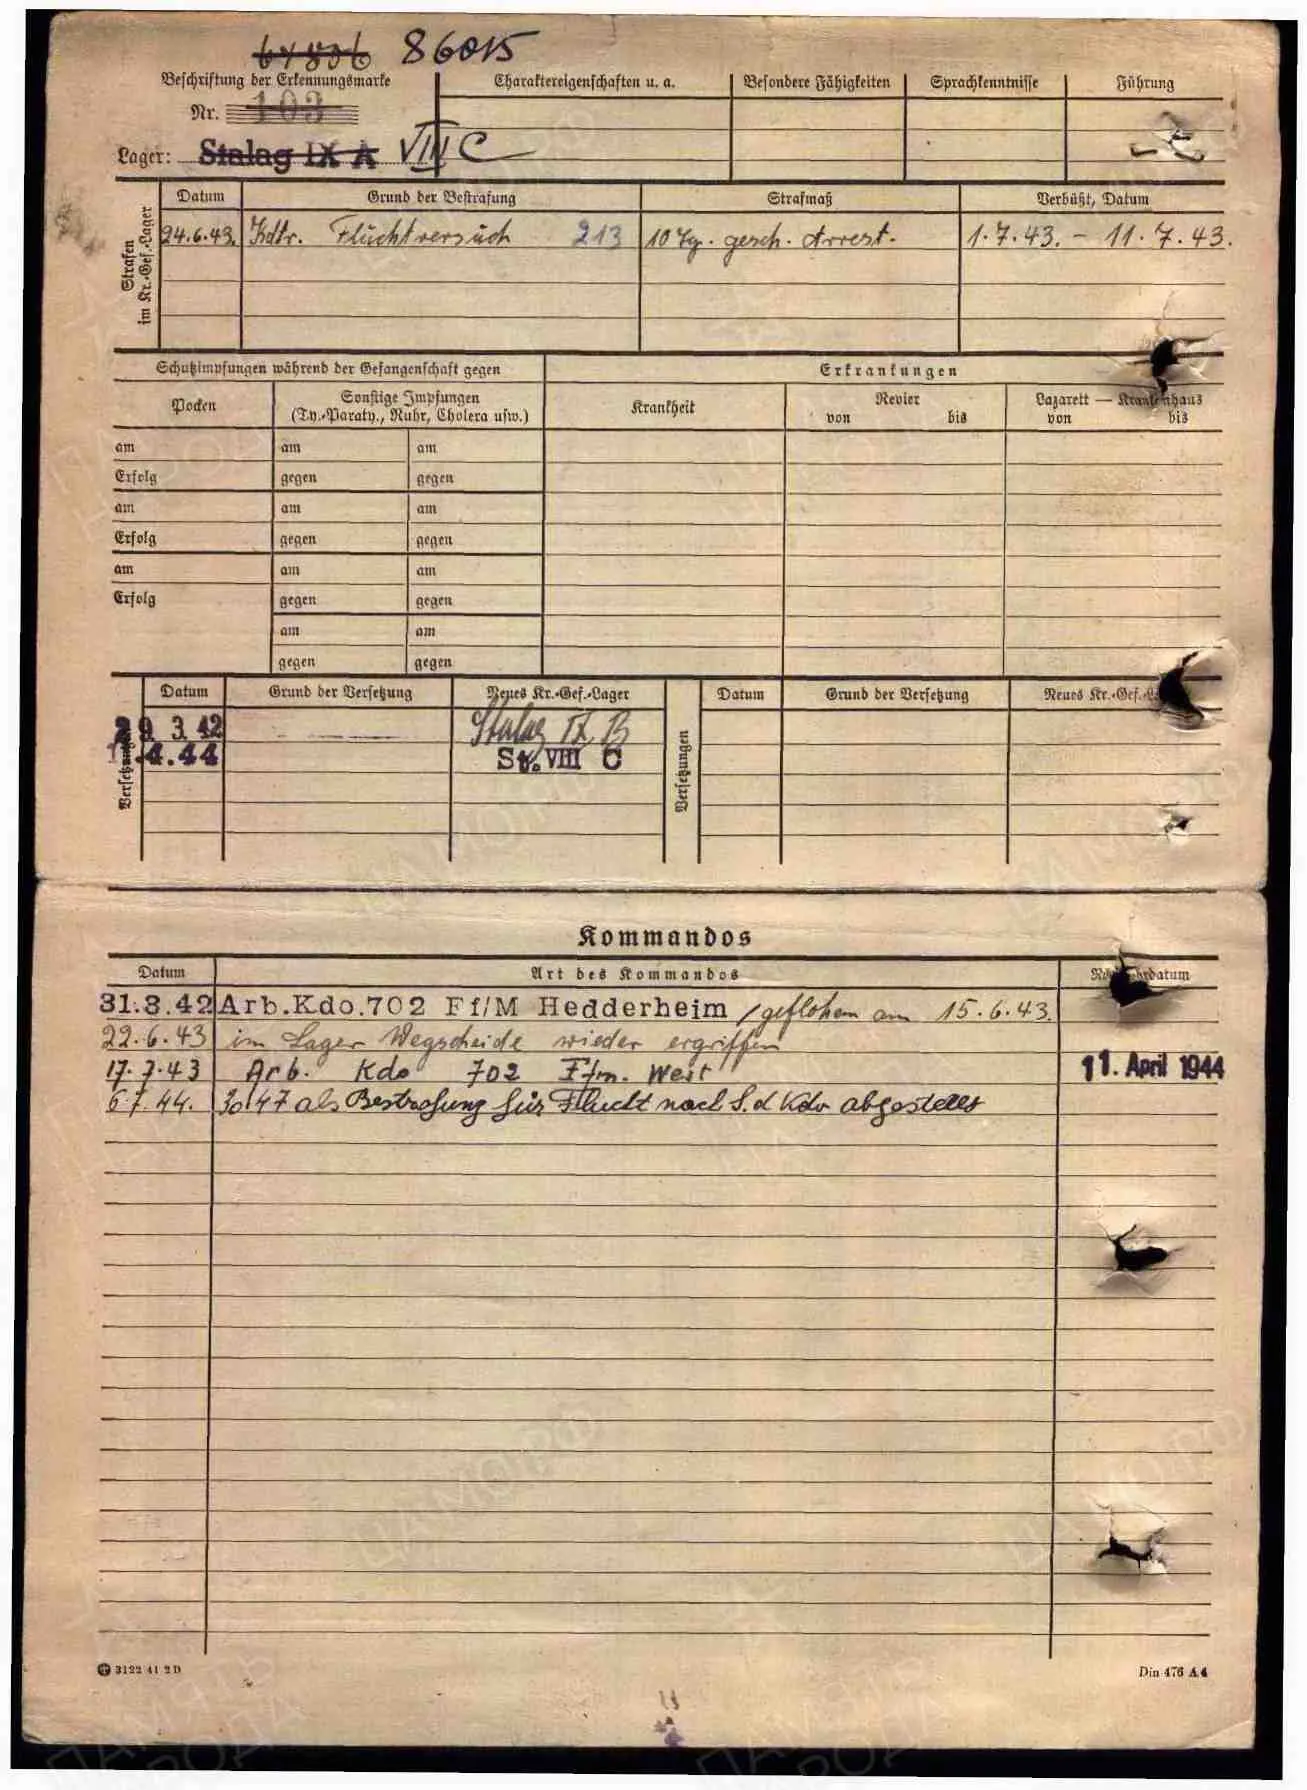 67836 86015
Beschriftung der Erkennungsmarke
Nr. 103
Lager: Stalag IX A VIII C
Charaktereigenschaften u. a. Besondere Fähigkeiten Sprachkenntnisse Führung
Strafen im Kr.-Gef.-Lager
Datum Grund der Bestrafung Strafmaß Verbüßt, Datum
24.6.43. Kdtr. Fluchtversuch 213 10 Tg. gesch. Arrest. 1.7.43. - 11.7.43.
Schutzimpfungen während der Gefangenschaft gegen Erkrankungen
Pocken Sonstige Impfungen (Ty.-Paraty., Ruhr, Cholera usw.) Krankheit Revier von bis Lazarett — Krankenhaus von bis
am am am
Erfolg gegen gegen
am am am
Erfolg gegen gegen
am am am
Erfolg gegen gegen
am am
gegen gegen
Versetzungen Datum Grund der Versetzung Neues Kr.-Gef.-Lager Versetzungen Datum Grund der Versetzung Neues Kr.-Gef.-
29 3. 42 Stalag IX B
.4.44 St. VIII C
Kommandos
Datum Art des Kommandos
31.3.42 Arb.Kdo.702 Ff/M Hedderheim / geflohen am 15.6.43.
22.6.43 im Lager Wegscheide wieder ergriffen
17.7.43 Arb. Kdo 702 Ffm. West 11. April 1944
6.7.44. als Bestrafung für Flucht nach S.d Kdo abgestellt
3122 41 2 D
Din 476 A 4
ПАМЯТЬ НАРОДА
ЦАМО РФ